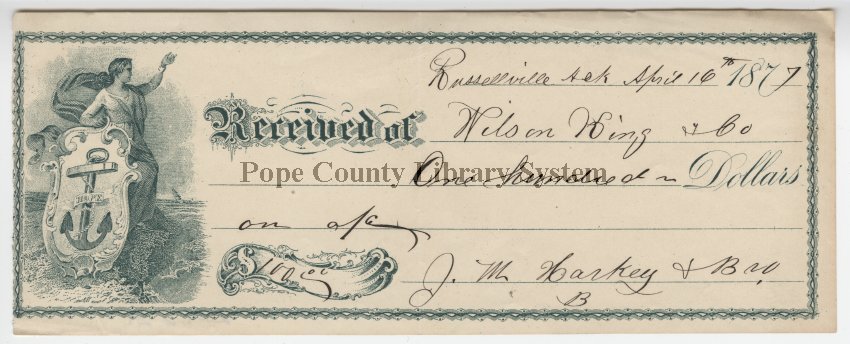 Russellville Ark April 16th 1877
Received of Wilson King & Co
One hundred Dollars
Pope County Library System
on a/c
$100.00 J. M. Harkey & Bro
B
HOPE